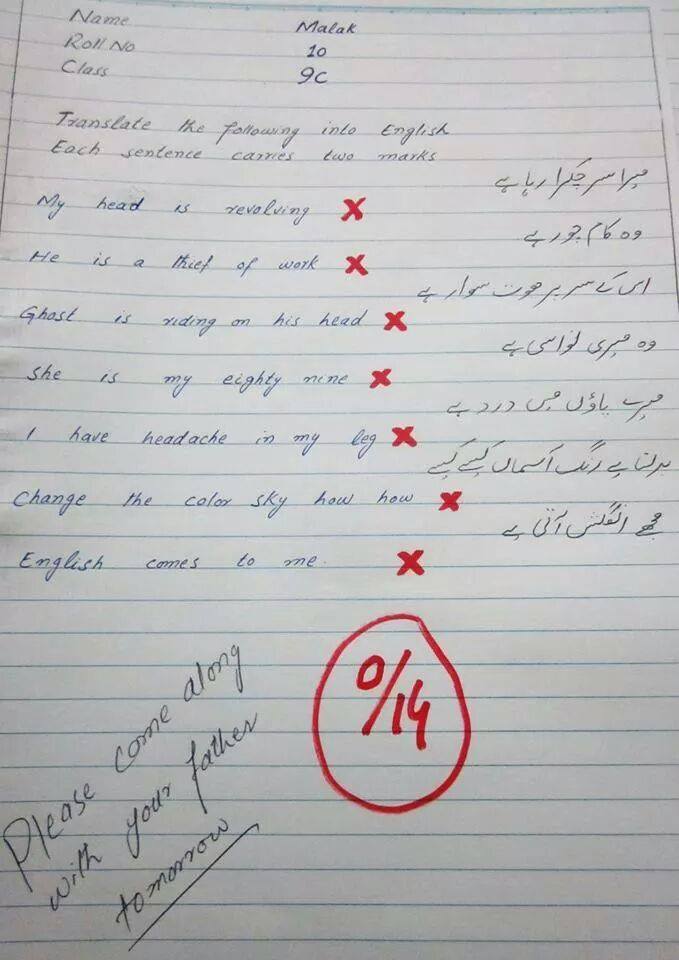 Name Malak
Roll No 10
Class 9C
Translate the following into English
Each sentence carries two marks
میرا سر چکرا رہا ہے
My head is revolving ✗
وہ کام چور ہے
He is a thief of work ✗
اس کے سر پر بھوت سوار ہے
Ghost is riding on his head ✗
وہ میری نواسی ہے
She is my eighty nine ✗
میرے پاؤں میں درد ہے
I have headache in my leg ✗
بدلتا ہے رنگ آسماں کیسے کیسے
Change the color sky how how ✗
مجھے انگلش آتی ہے
English comes to me. ✗
0/14
Please come along
with your father
tomorrow